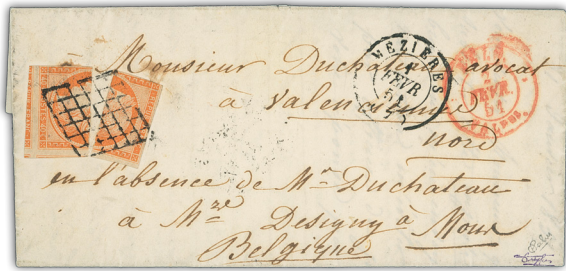 MEZIERES
1
FEVR
51
2
FEVR.
51
Monsieur Duchateau avocat
à Valenciennes
Nord
en l'absence de Mr Duchateau
à Me Designy à Mons
Belgique